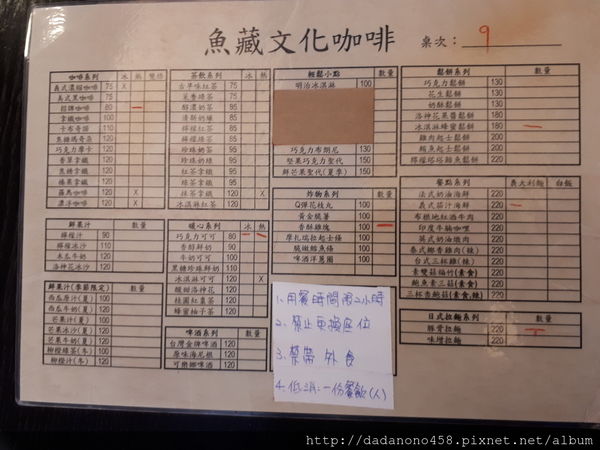 魚藏文化咖啡
桌次： 9
咖啡系列 冰 熱 雙倍
義式濃縮咖啡 75 X
美式黑咖啡 75
招牌咖啡 80
拿鐵咖啡 100
卡布奇諾 110
焦糖瑪奇朵 120
巧克力摩卡 120
香草拿鐵 120
焦糖拿鐵 120
榛果拿鐵 120
羅馬咖啡 120 X
漂浮咖啡 120 X
鮮果汁 數量
檸檬汁 90
檸檬冰沙 110
木瓜牛奶 120
洛神花冰沙 120
鮮果汁(季節限定) 數量
西瓜原汁(夏) 100
西瓜牛奶(夏) 120
芒果汁(夏) 100
芒果冰沙(夏) 120
芒果牛奶(夏) 120
柳橙綠茶(冬) 100
柳橙汁(冬) 120
茶飲系列 冰 熱
古早味紅茶 75
茉香綠茶 75
醇濃奶茶 95
清新奶綠 95
檸檬紅茶 95
檸檬綠茶 95
珍珠奶茶 95
珍珠奶綠 95
紅茶拿鐵 95
綠茶拿鐵 95
抹茶拿鐵 120 X
冰淇淋紅茶 120
暖心系列 冰 熱
巧克力可可 80
香醇鮮奶 90
牛奶可可 100
黑糖珍珠鮮奶 120
冰淇淋可可 120 X
酸甜洛神花 120
桂圓紅棗茶 120
蜂蜜柚子茶 120
啤酒系列 數量
台灣金牌啤酒 120
原味海尼根 120
可樂娜啤酒 120
輕鬆小點 數量
明治冰淇淋 100
巧克力布朗尼 130
堅果巧克力聖代 150
鮮芒果聖代(夏季) 150
炸物系列 數量
Q彈花枝丸 100
黃金脆薯 100
香酥雞塊 100
摩扎瑞拉起士條 100
脆嫩鱈魚條 100
啤酒洋蔥圈 100
1、用餐時間限2小時
2、禁止更換座位
3、禁帶外食
4、低消:一份餐飲(人)
鬆餅系列 數量
巧克力鬆餅 130
花生鬆餅 130
奶酥鬆餅 130
洛神花果醬鬆餅 180
冰淇淋蜂蜜鬆餅 180
雞肉起士鬆餅 200
鮪魚起士鬆餅 200
檸檬塔塔鮪魚鬆餅 200
餐點系列 義大利麵 白飯
法式奶油海鮮 220
義式茄汁海鮮 220
布根地紅酒牛肉 220
印度牛腩咖哩 220
英式奶油燉肉 220
泰式椰香雞肉(辣) 220
台式三杯雞(辣) 220
素雙菇貓竹(素食) 220
鮑魚素三菇(素食) 220
三杯杏鮑菇(素食) 220
日式拉麵系列 數量
豚骨拉麵 220
味增拉麵 220
http://dadanono458.pixnet.net/album